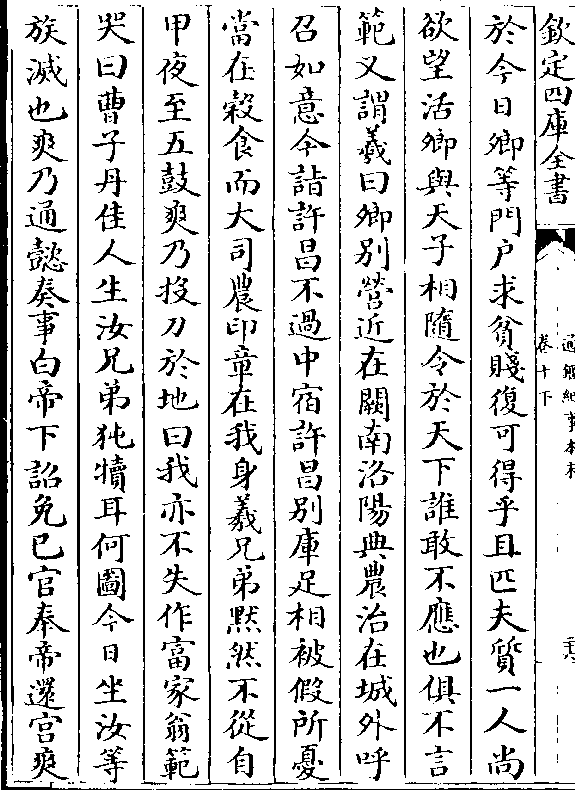 欽定四庫全書
通鑑紀事本末
卷十下
於今日卿等門户求貧賤復可得乎且匹夫質一人尚
欲望活卿與天子相隨令於天下誰敢不應也俱不言
範又謂羲曰卿别營近在闕南洛陽典農治在城外呼
召如意今詣許昌不過中宿許昌别庫足相被假所憂
當在穀食而大司農印章在我身羲兄弟黙然不從自
甲夜至五鼓爽乃投刀於地曰我亦不失作富家翁範
哭曰曹子丹佳人生汝兄弟㹠犢耳何圖今日坐汝等
族滅也爽乃通懿奏事白帝下詔免已官奉帝還宫爽